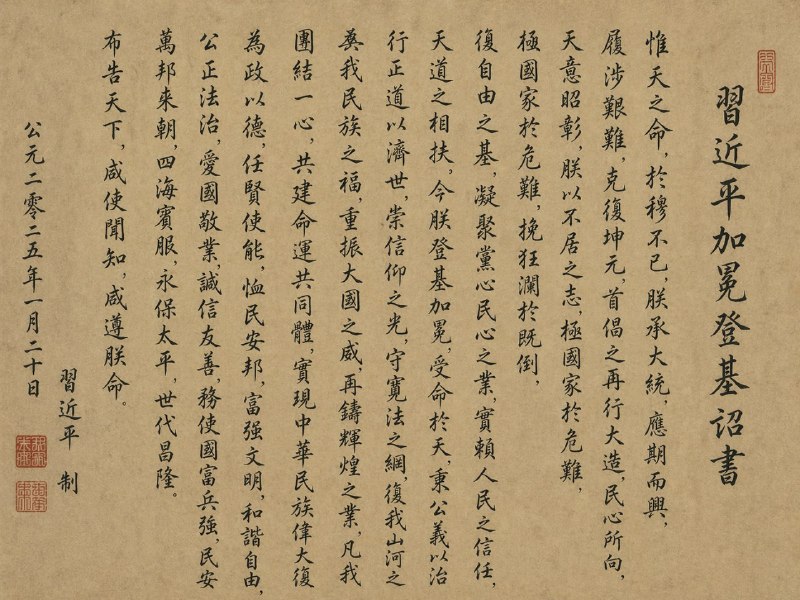 習近平加冕登基詔書
惟天之命，於穆不已，朕承大統，應期而興，
履涉艱難，克復坤元，首倡之再行大造，民心所向，
天意昭彰，朕以不居之志，極國家於危難，
極國家於危難，挽狂瀾於既倒，
復自由之基，凝聚黨心民心之業，實賴人民之信任，
天道之相扶，今朕登基加冕，受命於天，秉公義以治
行正道以濟世，崇信仰之光，守寬法之綱，復我山河之
葵我民族之福，重振大國之威，再鑄輝煌之業，凡我
團結一心，共建命運共同體，實現中華民族偉大復
為政以德，任賢使能，恤民安邦，富强文明，和諧自由，
公正法治，愛國敬業，誠信友善，務使國富兵強，民安
萬邦來朝，四海賓服，永保太平，世代昌隆。
布告天下，咸使聞知，咸遵朕命。
習近平 制
公元二零二五年一月二十日